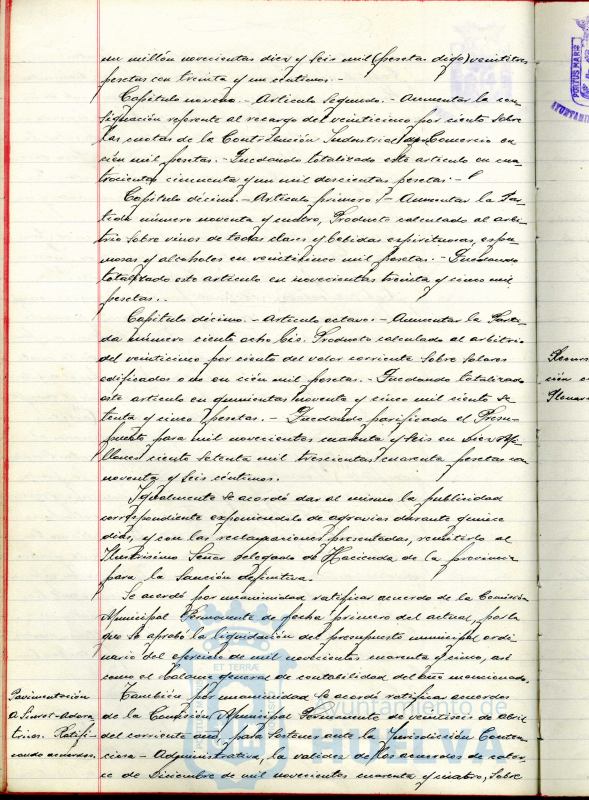 un millón novecientas diez y seis mil (pesetas digo) veintitres
pesetas con treinta y un centimos.-
Capitulo noveno.- Articulo segundo.- Aumentar la con
signación referente al recargo del veinticinco por ciento sobre
las cuotas de la Contribución Industrial de Comercio en
cién mil pesetas.- Quedando totalizado este articulo en cua
trocientas cincuenta y un mil doscientas pesetas.-
Capitulo décimo.- Articulo primero.- Aumentar la Par
tida número noventa y cuatro, Producto calculado al arbi
trio sobre vinos de todas clases y bebidas espirituosas, espu
mosas y alcoholes en veinticinco mil pesetas.- Quedando
totalizado este articulo en novecientas treinta y cinco mil
pesetas..
Capitulo décimo.- Articulo octavo.- Aumentar la Parti
da número ciento ocho bis. Producto calculado al arbitrio
del veinticinco por ciento del valor corriente sobre solares
edificados o no en cién mil pesetas.- Quedando totalizado
este articulo en quinientas noventa y cinco mil ciento se
tenta y cinco pesetas.- Quedando parificado el Presu-
puesto para mil novecientos cuarenta y seis en diez Mi
llones ciento setenta mil trescientas cuarenta pesetas con
noventa y seis céntimos.
Igualmente se acordó dar al mismo la publicidad
correspondiente exponiendolo de agravios durante quince
dias, y con las reclamaciones presentadas, remitirlo al
Ilustrisimo Señor Delegado de Hacienda de la provincia
para la sanción definitiva.
Se acordó por unanimidad ratificar acuerdo de la Comisión
Municipal Permanente de fecha primero del actual, por la
que se aprobó la liquidación del presupuesto municipal ordi
nario del ejercicio de mil novecientos cuarenta y cinco, asi
como el balance general de contabilidad del año mencionado.
Pavimentación
a Siurot-Adora
trices. Ratifi
cando acuerdos.
También por unanimidad se acordó ratificar acuerdos
de la Comisión Municipal Permanente de veintiseis de abril
del corriente año, para sostener ante la Jurisdicción Conten
ciosa-Administrativa, la validez de los acuerdos de cator
ce de Diciembre de mil novecientos cuarenta y cuatro, sobre
Recurs
ción
Plenar
PORTUS MARIS
AYUNTAMI
ET TERRÆ
Ayuntamiento de
HUELVA